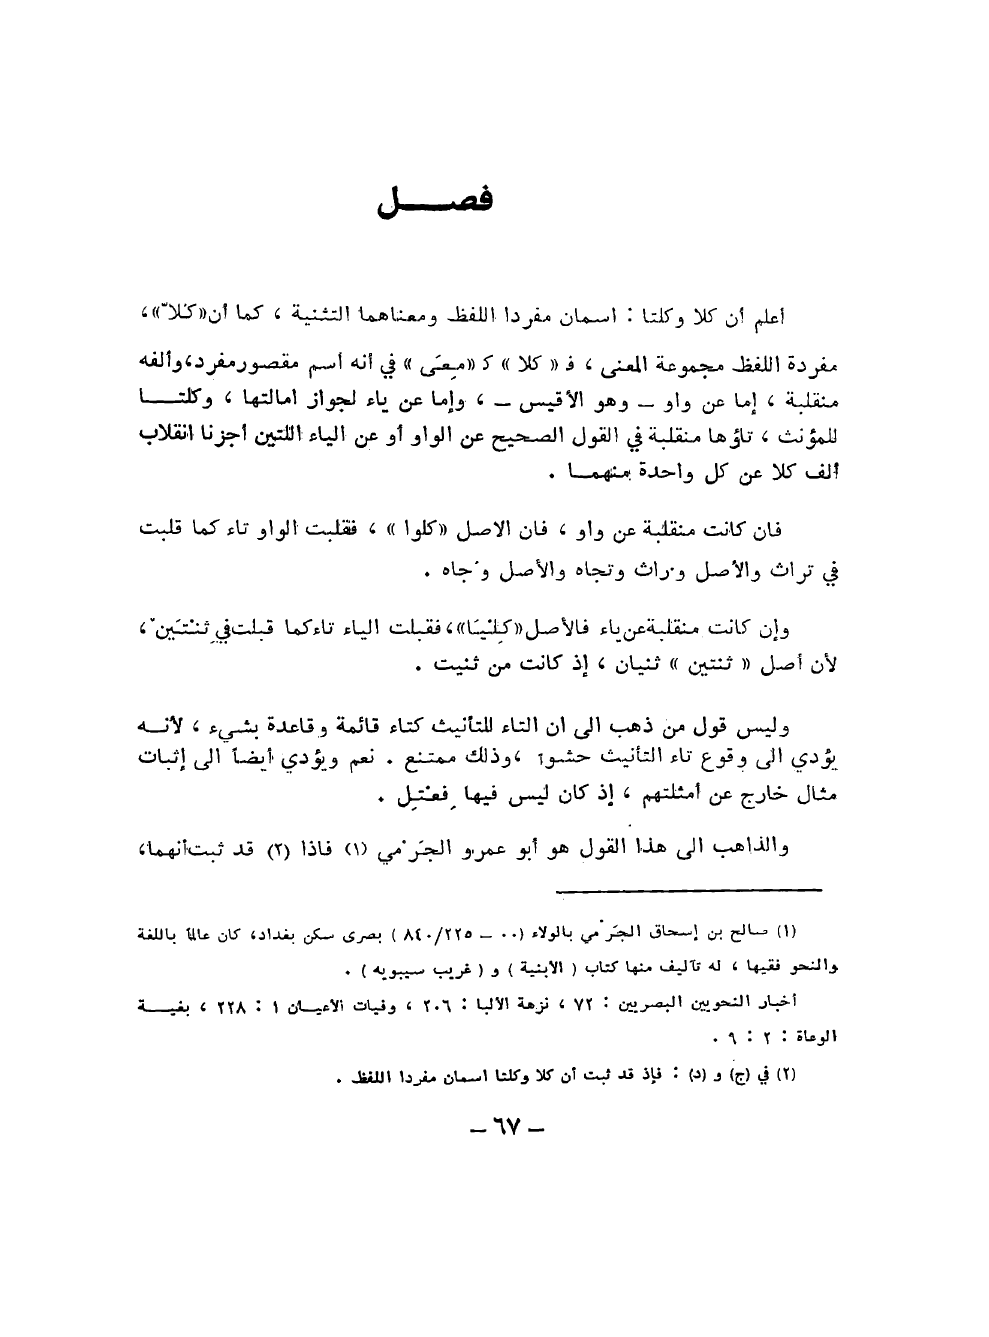 فصـــــل
أعلم أن كلا وكلتا : اسمان مفردا اللفظ ومعناهما التثنية ، كما أن«كلاّ»،
مفردة اللفظ مجموعة المعنى ، فـ « كلا » كـ «مِعَى » في أنه أسم مقصورمفرد،وألفه
منقلبة ، إما عن واو ــ وهو الأقيس ــ ، وإما عن ياء لجواز امالتها ، وكلتــــا
للمؤنث ، تاؤها منقلبة في القول الصحيح عن الواو أو عن الياء اللتين أجزنا انقلاب
ألف كلا عن كل واحدة منهمــا .
فان كانت منقلبة عن واو ، فان الاصل «كلوا » ، فقلبت الواو تاء كما قلبت
في تراث والأصل وُراث وتجاه والأصل وُجاه .
وإن كانت منقلبةعن‌ياء فالأصل«كِلْيَا»،فقبلت الياء تاءكما قبلت‌في‌ثِنْتَين ْ،
لأن أصل « ثنتين » ثنيان ، إذ كانت من ثنيت .
وليس قول من ذهب الى ان التاء للتأنيث كتاء قائمة وقاعدة بشيء ، لأنــه
يؤدي الى وقوع تاء التأنيث حشوا ،وذلك ممتنع . نعم ويؤدي أيضاً الى إثبات
مثال خارج عن أمثلتهم ، إذ كان ليس فيها فِعْتَل .
والذاهب الى هذا القول هو أبو عمرو الجَرْمي (١) فاذا (٢) قد ثبت‌أنهما،
(١) صالح بن إسحاق الجَرْمي بالولاء (٠٠ ــ ٨٤٠/٢٢٥ ) بصرى سكن بغداد، كان عالما باللغة
والنحو فقيها ، له تآليف منها كتاب ( الابنية ) و ( غريب سيبويه ) .
أخبار النحويين البصريين : ٧٢ ، نزهة الألبا : ٢٠٦ ، وفيات الاعيــان ١ : ٢٢٨ ، بغيـــة
الوعاة : ٢ : ٩ .
(٢) في (ج) و (د) : فإذ قد ثبت أن كلا وكلتا اسمان مفردا اللفظ .
ــ ٦٧ ــ